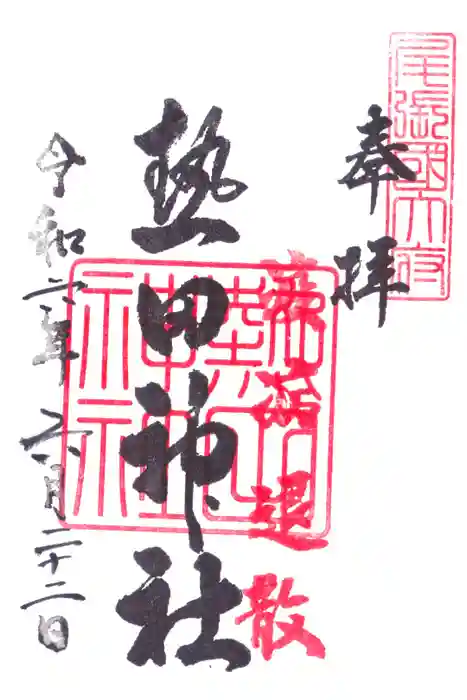 尾張國大府
奉拝
退散
熱田神社
熱田神社
令和六年 六月二十二日